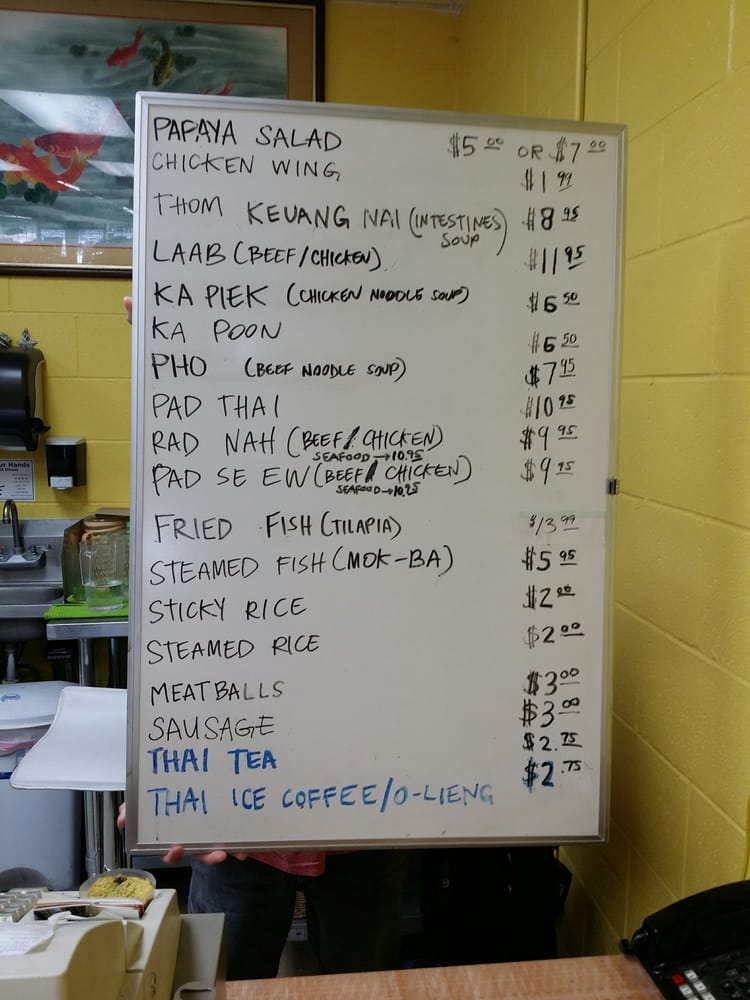 PAPAYA SALAD $5.00 OR $7.00
CHICKEN WING $1.99
THOM KEUANG NAI (INTESTINES SOUP) $8.95
LAAB (BEEF/CHICKEN) $11.95
KA PIEK (CHICKEN NOODLE SOUP) $6.50
KA POON $6.50
PHO (BEEF NOODLE SOUP) $7.95
PAD THAI $10.95
RAD NAH (BEEF/CHICKEN) $9.95
SEAFOOD → 10.95
PAD SE EW (BEEF/CHICKEN) $9.95
SEAFOOD → 10.95
FRIED FISH (TILAPIA) $13.99
STEAMED FISH (MOK-BA) $5.95
STICKY RICE $2.00
STEAMED RICE $2.00
MEATBALLS $3.00
SAUSAGE $3.00
THAI TEA $2.75
THAI ICE COFFEE/O-LIENG $2.75
ur Hands